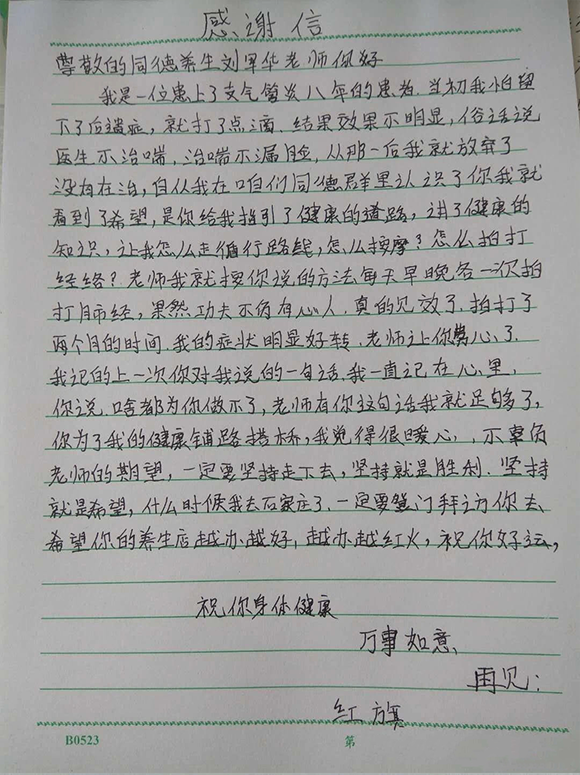 感谢信
尊敬的同德养生刘军华老师你好
我是一位患上了支气管炎八年的患者.当初我怕留
下了后遗症,就打了点滴.结果效果不明显,俗话说
医生不治喘,治喘不漏脸,从那一后我就放弃了
没有在治,自从我在咱们同德群里认识了你我就
看到了希望,是你给我指引了健康的道路,讲了健康的
知识,让我怎么走循行路线,怎么按摩?怎么拍打
经络?老师我就按你说的方法每天早晚各一次拍
打肺经,果然功夫不负有心人.真的见效了.拍打了
两个月的时间.我的症状明显好转.老师让你费心了.
我记的上一次你对我说的一句话.我一直记在心里.
你说.啥都为你做不了,老师有你这句话我就足够了,
你为了我的健康铺路搭桥,我觉得很暖心,.不辜负
老师的期望,一定要坚持走下去,坚持就是胜利.坚持
就是希望,什么时候我去石家庄了.一定要登门拜访你去.
希望你的养生店越办越好,越办越红火,祝你好运,
祝你身体健康
万事如意、
再见:
红旗
B0523 第